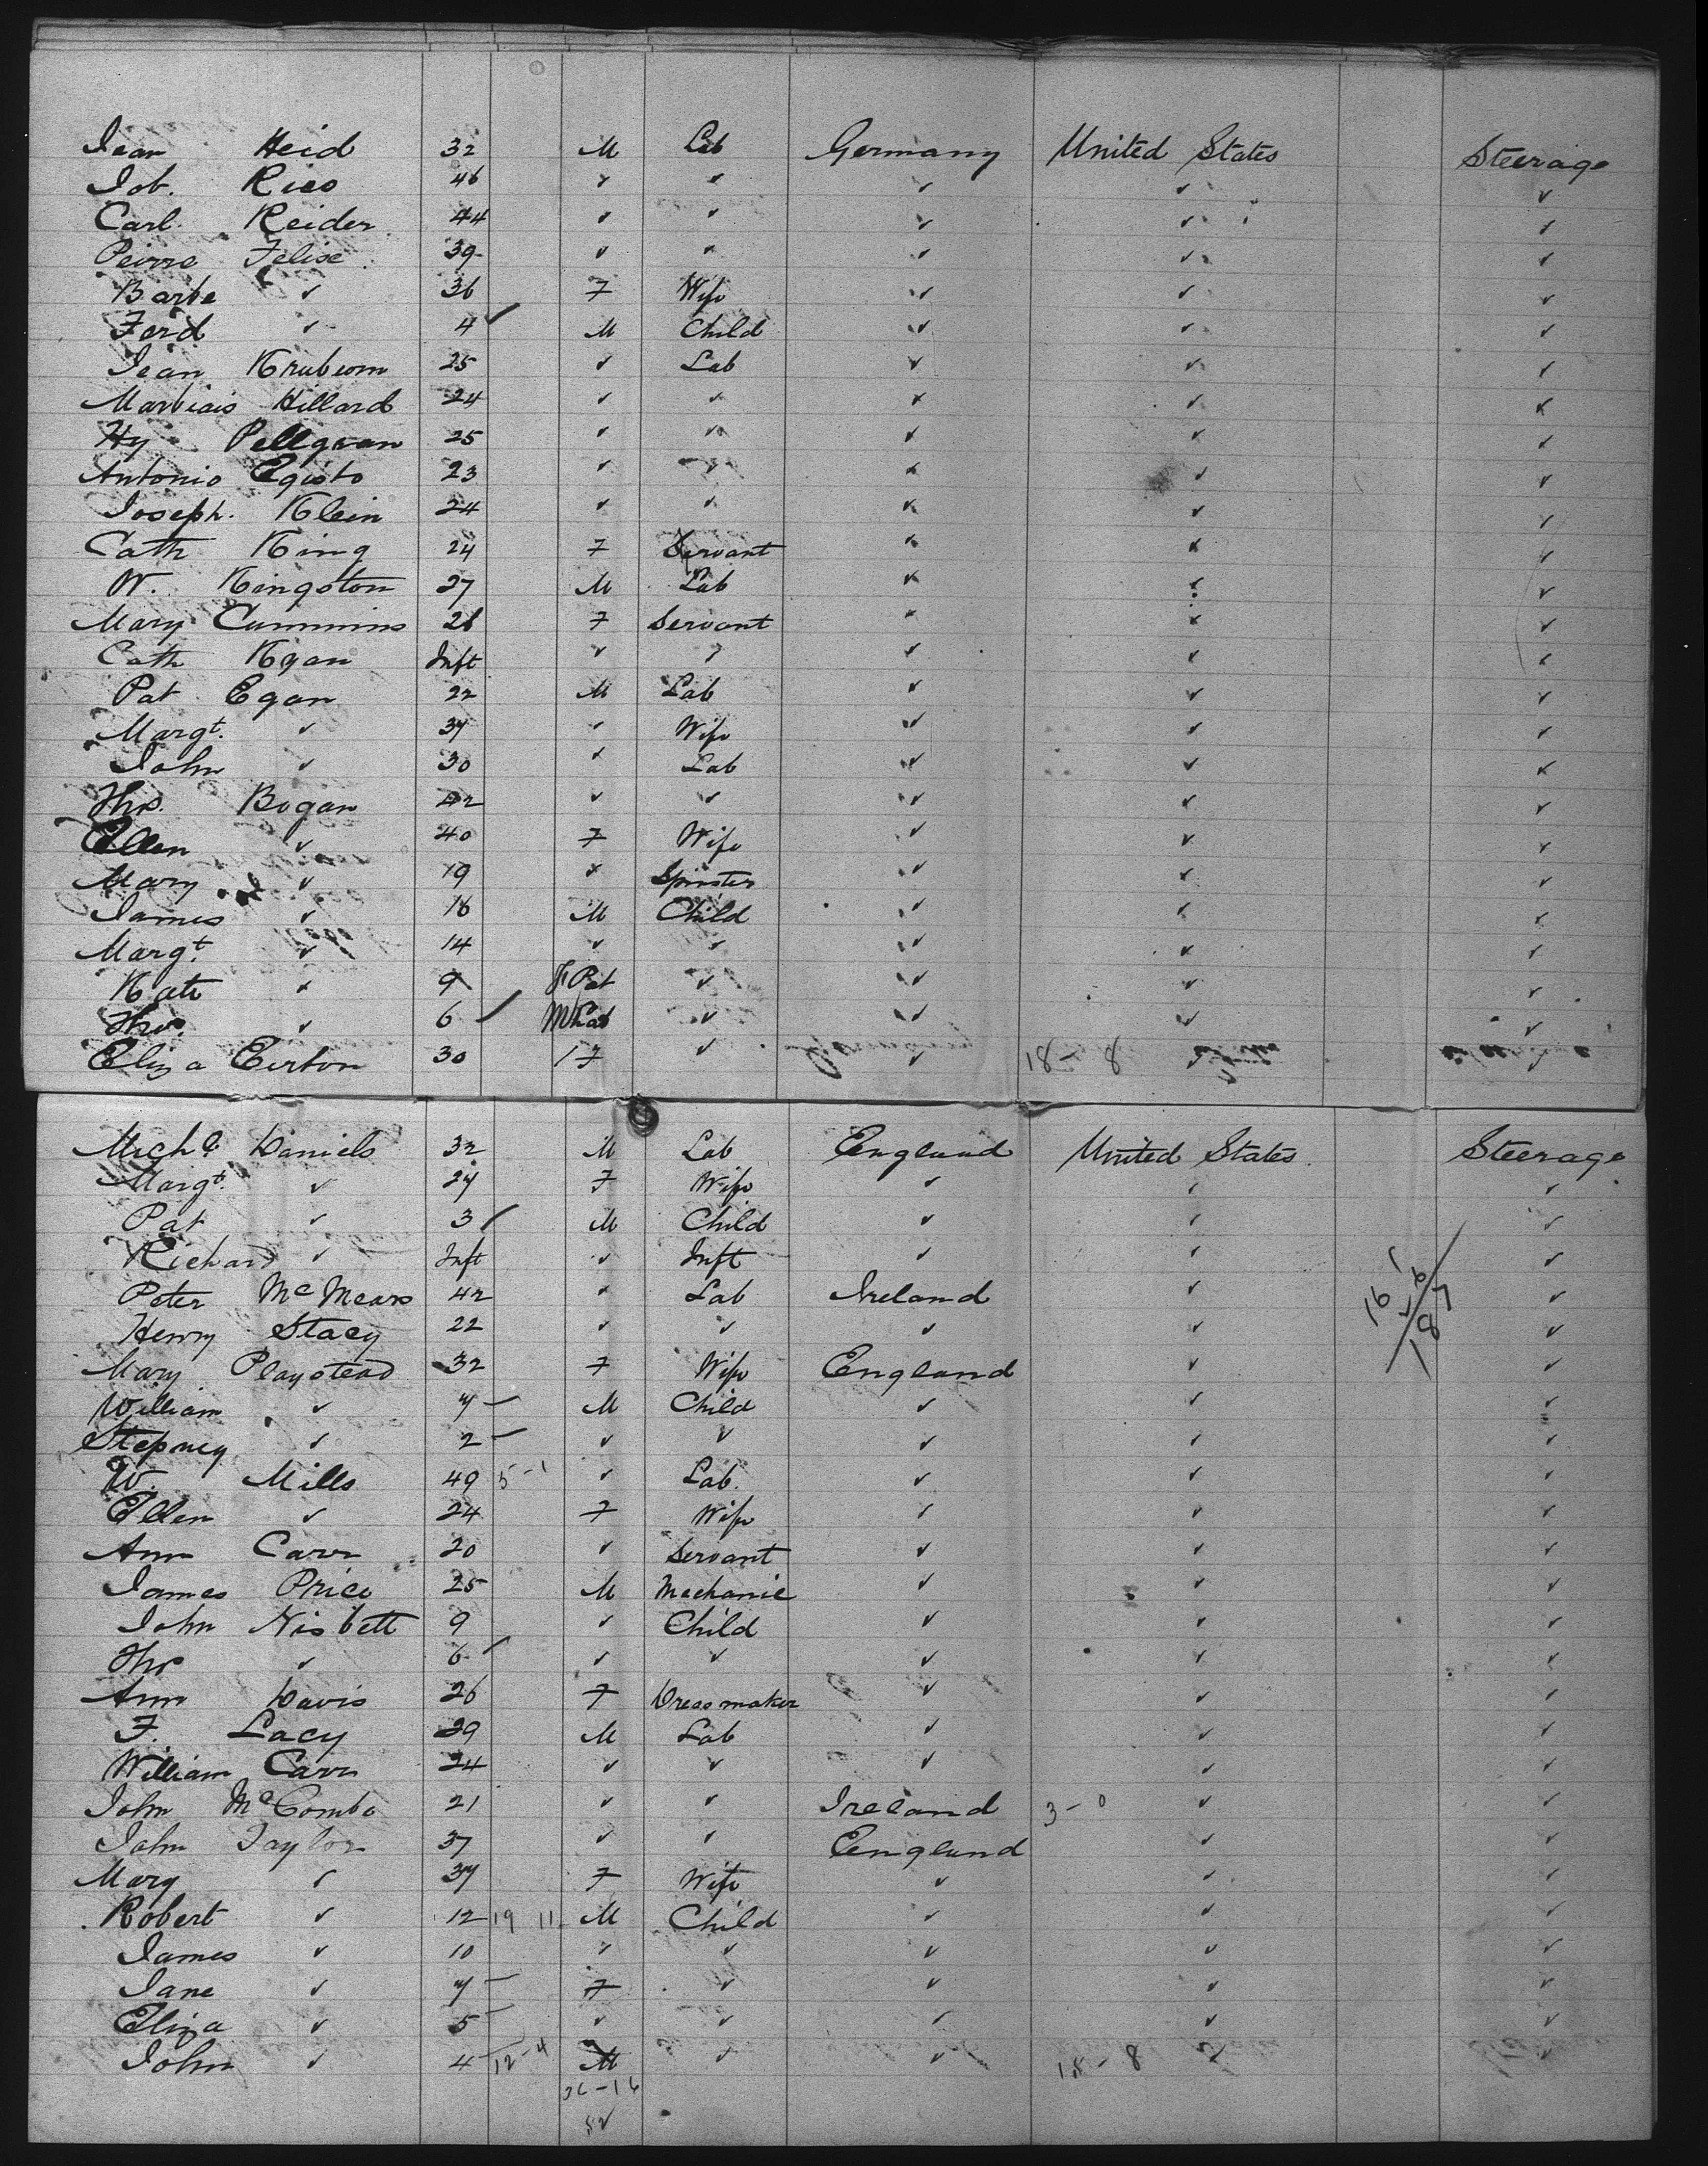 Jean Heid 32 M Lab Germany United States Steerage
Job. Ries 46 ✓ ✓ ✓ ✓ ✓
Carl. Reider 44 ✓ ✓ ✓ ✓ ✓
Peirre Felise 39 ✓ ✓ ✓ ✓ ✓
Barbe ✓ 36 F Wife ✓ ✓ ✓
Ferd ✓ 4 ✓ M Child ✓ ✓ ✓
Jean 25 ✓ Lab ✓ ✓ ✓
Hillard 24 ✓ ✓ ✓ ✓ ✓
Hy Pellgran 25 ✓ ✓ ✓ ✓ ✓
Antonio Egisto 23 ✓ ✓ ✓ ✓ ✓
Joseph. Klein 24 ✓ ✓ ✓ ✓ ✓
Cath King 24 F Servant ✓ ✓ ✓
W. Kingston 27 M Lab ✓ ✓ ✓
Mary Cummins 26 F Servant ✓ ✓ ✓
Cath Kyan Inft ✓ ✓ ✓ ✓ ✓
Pat Egan 22 M Lab ✓ ✓ ✓
Margt. ✓ 34 ✓ Wife ✓ ✓ ✓
John ✓ 30 ✓ Lab ✓ ✓ ✓
Thos. Bogan 42 ✓ ✓ ✓ ✓ ✓
Ellen ✓ 40 F Wife ✓ ✓ ✓
Mary ✓ 19 ✓ Spinster ✓ ✓ ✓
James ✓ 16 M Child ✓ ✓ ✓
Margt. ✓ 14 ✓ ✓ ✓ ✓ ✓
Kate ✓ 9 F ✓ ✓ ✓ ✓
Thos. ✓ 6 ✓ M ✓ ✓ ✓ ✓
Eliza Eirton 30 17 ✓ ✓ 18-8 ✓ ✓
Michl Daniels 32 M Lab England United States Steerage
Margt. ✓ 24 F Wife ✓ ✓ ✓
Pat ✓ 3 ✓ M Child ✓ ✓ ✓
Richard ✓ Inft ✓ Inft ✓ ✓ ✓
Peter McMears 42 ✓ Lab Ireland ✓ ✓
Henry Stacy 22 ✓ ✓ ✓ ✓ ✓
Mary Playstead 32 F Wife England ✓ ✓
William ✓ 7 - M Child ✓ ✓ ✓
Stepney ✓ 2 - ✓ ✓ ✓ ✓ ✓
W. Mills 49 5-1 ✓ Lab. ✓ ✓ ✓
Ellen ✓ 24 F Wife ✓ ✓ ✓
Ann Carr 20 ✓ Servant ✓ ✓ ✓
James Price 25 M Mechanic ✓ ✓ ✓
John Nisbett 9 ✓ Child ✓ ✓ ✓
Thos ✓ 6 ✓ ✓ ✓ ✓ ✓ ✓
Ann Davis 26 F Dressmaker ✓ ✓ ✓
F. Lacy 29 M Lab ✓ ✓ ✓
William Carr 24 ✓ ✓ ✓ ✓ ✓
John McCombe 21 ✓ ✓ Ireland 3-0 ✓ ✓
John Taylor 37 ✓ ✓ England ✓ ✓
Mary ✓ 34 F Wife ✓ ✓ ✓
Robert ✓ 12 19 11 M Child ✓ ✓ ✓
James ✓ 10 ✓ ✓ ✓ ✓ ✓
Jane ✓ 7 - F ✓ ✓ ✓ ✓
Eliza ✓ 5 - ✓ ✓ ✓ ✓ ✓
John ✓ 4 - 12-4 M ✓ ✓ 18-8 ✓ ✓
36-16
52